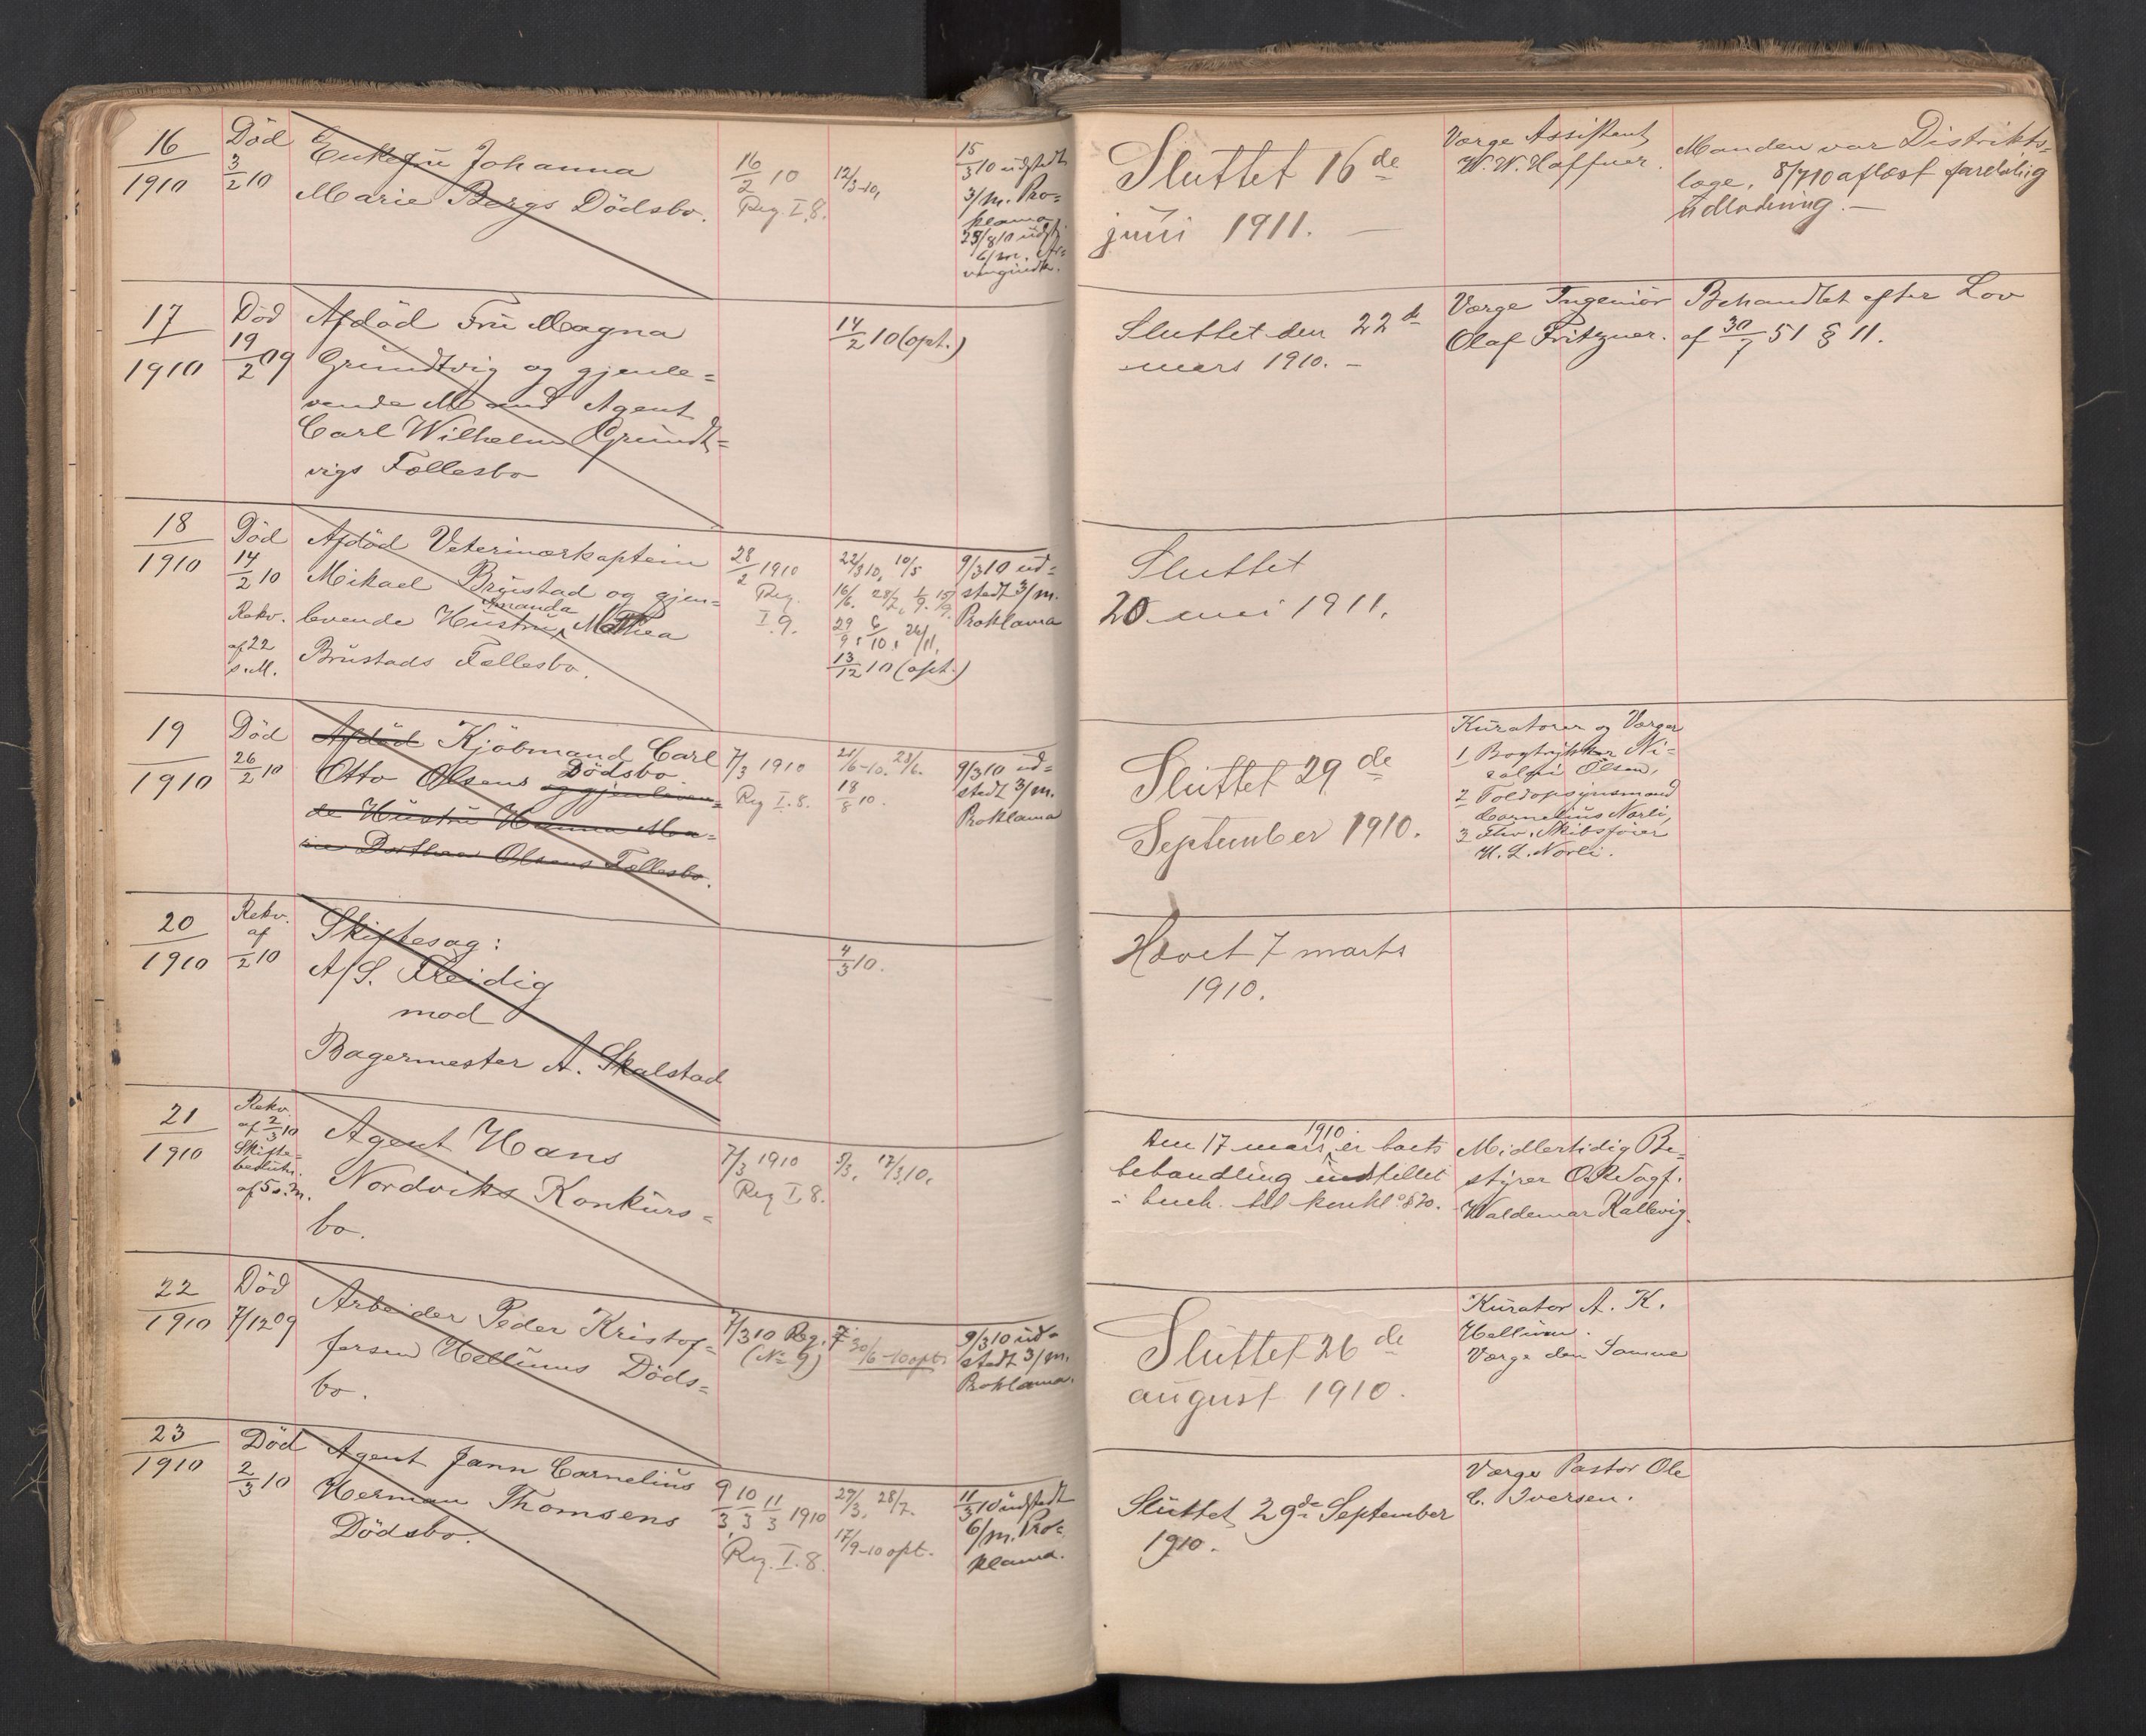 16
1910
Död
3/2 10
Enkefru Johanna
Marie Bergs Dödsbo.
16/2 10
Reg. I.8.
12/3-10,
15/3 10 udstedt
3/m. Pro-
klama
25/8 10 udst.
6/m.
Sluttet 16de
juni 1911. —
Værge Assistent
W. W. Haffner.
Manden var Distrikts-
læge. 8/7 10 aflæst foreløbig
udlodning. —
17
1910
Död
19/2 09
Afdöd Fru Magna
Grundtvig og gjenle=
vende Mand Agent
Carl Wilhelm Grundt=
vigs Fællesbo
14/2 10 (opt.)
Sluttet den 22d
mars 1910. —
Værge Ingeniör
Olaf Fritzner.
Behandlet efter Lov
af 30/7 51 § 11.
18
1910
Död
14/2 10
Rekv.
af 22
s.M.
Afdöd Veterinærkaptein
Mikael Brustad og gjen=
levende Hustru Amanda Mathea
Brustads Fællesbo.
28/2 1910
Reg.
I.9.
22/3 10, 10/5
16/6. 28/7, 1/9. 15/9.
29/9, 6/10, 26/11,
13/12 10 (opt.)
9/3 10 ud=
stedt 3/m.
Proklama
Sluttet
20 mai 1911.
19
1910
Död
26/2 10
Afdöd Kjöbmand Carl
Otto Olsens Dödsbo. og gjenleven=
de Hustru Hanna Ma=
rie Dorthea Olsens Fællesbo.
7/3 1910
Reg I.8.
21/6-10. 23/6.
18/8 10.
9/3 10 ud=
stedt 3/m.
Proklama
Sluttet 29de
September 1910.
Kuratorer og Værger
1 Bogtrykker Ni=
Olsen,
2 Toldopsynsmand
Cornelius Norli,
3 Fhv. Skibsfører
H. L. Norli.
20
1910
Rekv.
af
/2 10
Skiftesag:
A/S. Fleidig
mod
Bagermester A. Skalstad
4/3 10.
Hævet 7 marts
1910.
21
1910
Rekv.
af 2/3 10
Skifte=
beslutn.
af 5 s.m.
Agent Hans
Nordviks Konkurs=
bo.
7/3 1910
Reg I.8.
5/3, 17/3 10,
Den 17 mars 1910 er boets
behandling indstillet
i henh. til konkl. § 20.
Midlertidig Be=
styrer O.R.Sagf.
Waldemar Kallevig.
22
1910
Död
7/12 09
Arbeider Peder Kristof=
fersen Hellums Döds=
bo.
7/3 10 Reg. 7
(No 9)
30/6-10 opt.
9/3 10 ud=
stedt 3/m.
Proklama.
Sluttet 26de
august 1910.
Kurator A. K.
Hellum.
Værge den Samme
23
1910
Död
2/3 10
Agent Jann Cornelius
Herman Thomsens
Dödsbo.
9/3, 10/3 11/3 1910
Reg. I.8.
29/3, 28/7.
17/9-10 opt.
11/3 10 udstedt
6/m. Pro=
klama.
Sluttet 29de September
1910.
Værge Pastor Ole
C. Iversen.